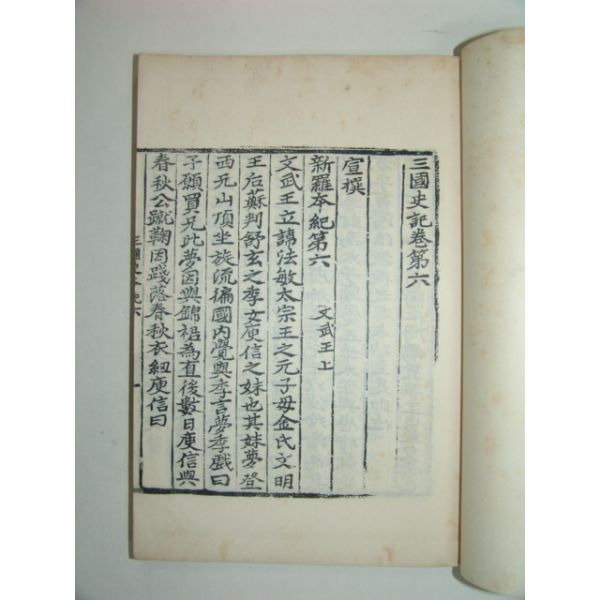 三國史記卷第六
宣撰
新羅本紀第六 文武王上
文武王立諱法敏太宗王之元子母金氏文明
王后蘇判舒玄之季女庾信之妹也其妹夢登
西兄山頂坐旋流徧國內覺與季言夢季戲曰
予願買兄此夢因與錦裙為直後數日庾信與
春秋公蹴鞠因踐落春秋衣紐庾信曰